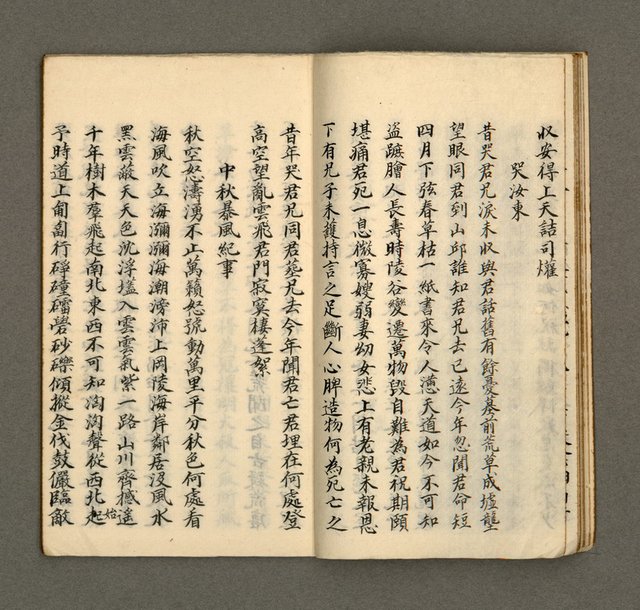 收安得上天詰司爟
哭汝東
昔哭君兄淚未收與君話舊有餘憂墓前荒草成墟壟
望眼同君到山邱誰知君兄去已遠今年忽聞君命短
四月下弦春草枯一紙書來令人懣天道如今不可知
盜蹠膾人長壽時陵谷變遷萬物毀自難為君祝期頤
堪痛君死一息微寡嫂弱妻幼女悲上有老親未報恩
下有兄子未獲持言之足斷人心脾造物何為死亡之
昔年哭君兄同君葬兄去今年聞君亡君埋在何處登
高空望亂雲飛君門寂寞棲蓬絮
中秋暴風紀事
秋空怒濤湧不止萬籟怒號動萬里平分秋色何處看
海風吹立海瀰瀰海潮滂沛上岡陵海岸鄰居沒風水
黑雲蔽天天色沈浮壒入雲雲氣紫一路山川齊撼遙
千年樹木羣飛起南北東西不可知洶洶聲從西北起始
予時道上匍匐行硨礚礌礐砂礫傾摐金伐鼓儼臨敵